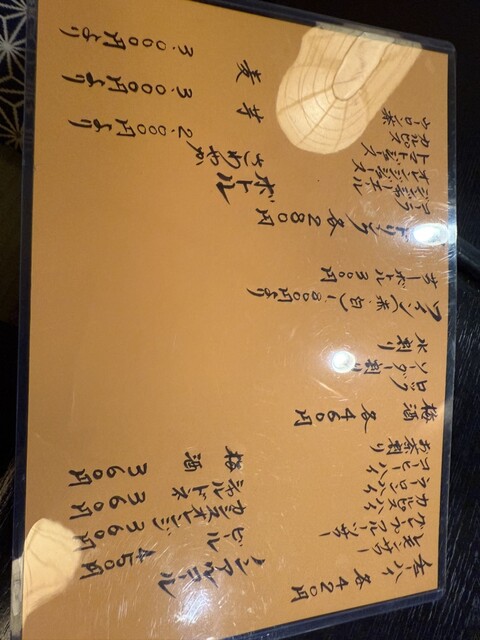 酎ハイ 各420円
生レモンサワー
カルピスハイ
ウーロンハイ
コーヒーハイ
お茶割り
梅酒 各460円
ロック
ソーダー割り
水割り
ワイン(赤・白)800円より
ドリンク 各280円
コーラ
ジンジャーエール
オレンジジュース
トマトジュース
カルピス
ウーロン茶
ノンアルコール
ビール 450円
カシスオレンジ 360円
シャルドネ 360円
梅酒 360円
ボトル
さわやか 2.000円より
芋 3.000円より
麦 3.000円より